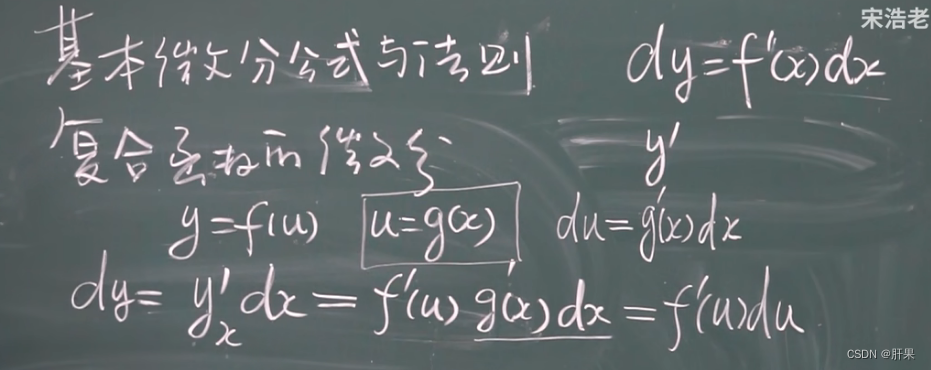 宋浩老
基本微分公式与法则 dy=f'(x)dx
复合函数的微分 y'
y=f(u) u=g(x) du=g'(x)dx
dy=y'ₓdx=f'(u)g'(x)dx=f'(u)du
CSDN @肝果